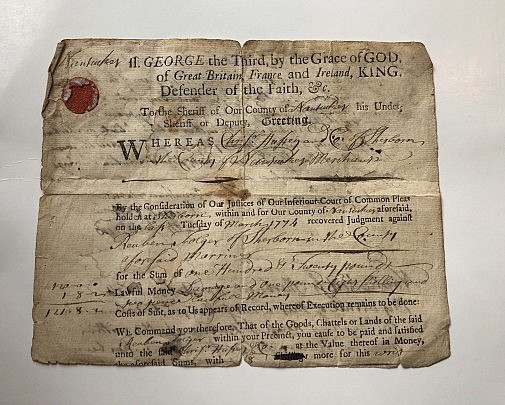 Nantucket ss. GEORGE the Third, by the Grace of GOD,
of Great Britain, France and Ireland, KING,
Defender of the Faith, &c.
To the Sheriff of Our County of Nantucket his Under
Sheriff or Deputy, Greeting.
WHEREAS Christ. Hussey and Co. of Sherborn
in the County of Nantucket Merchants
By the Consideration of Our Justices of Our Inferiour Court of Common Pleas
holden at Sherborn, within and for Our County of Nantucket aforesaid,
on the last Tuesday of March 1774 recovered Judgment against
Reuben Folger of Sherborn in the County
aforesaid Marriner
for the Sum of one Hundred & Twenty pounds
Lawful Money and pence
two pence Money
Costs of Suit, as to Us appears of Record, whereof Execution remains to be done:
WE Command you therefore, That of the Goods, Chattels or Lands of the said
Reuben Folger within your Precinct, you cause to be paid and satisfied
unto the said Christ. Hussey & Co. at the Value thereof in Money,
the aforesaid Sums, with more for this writ